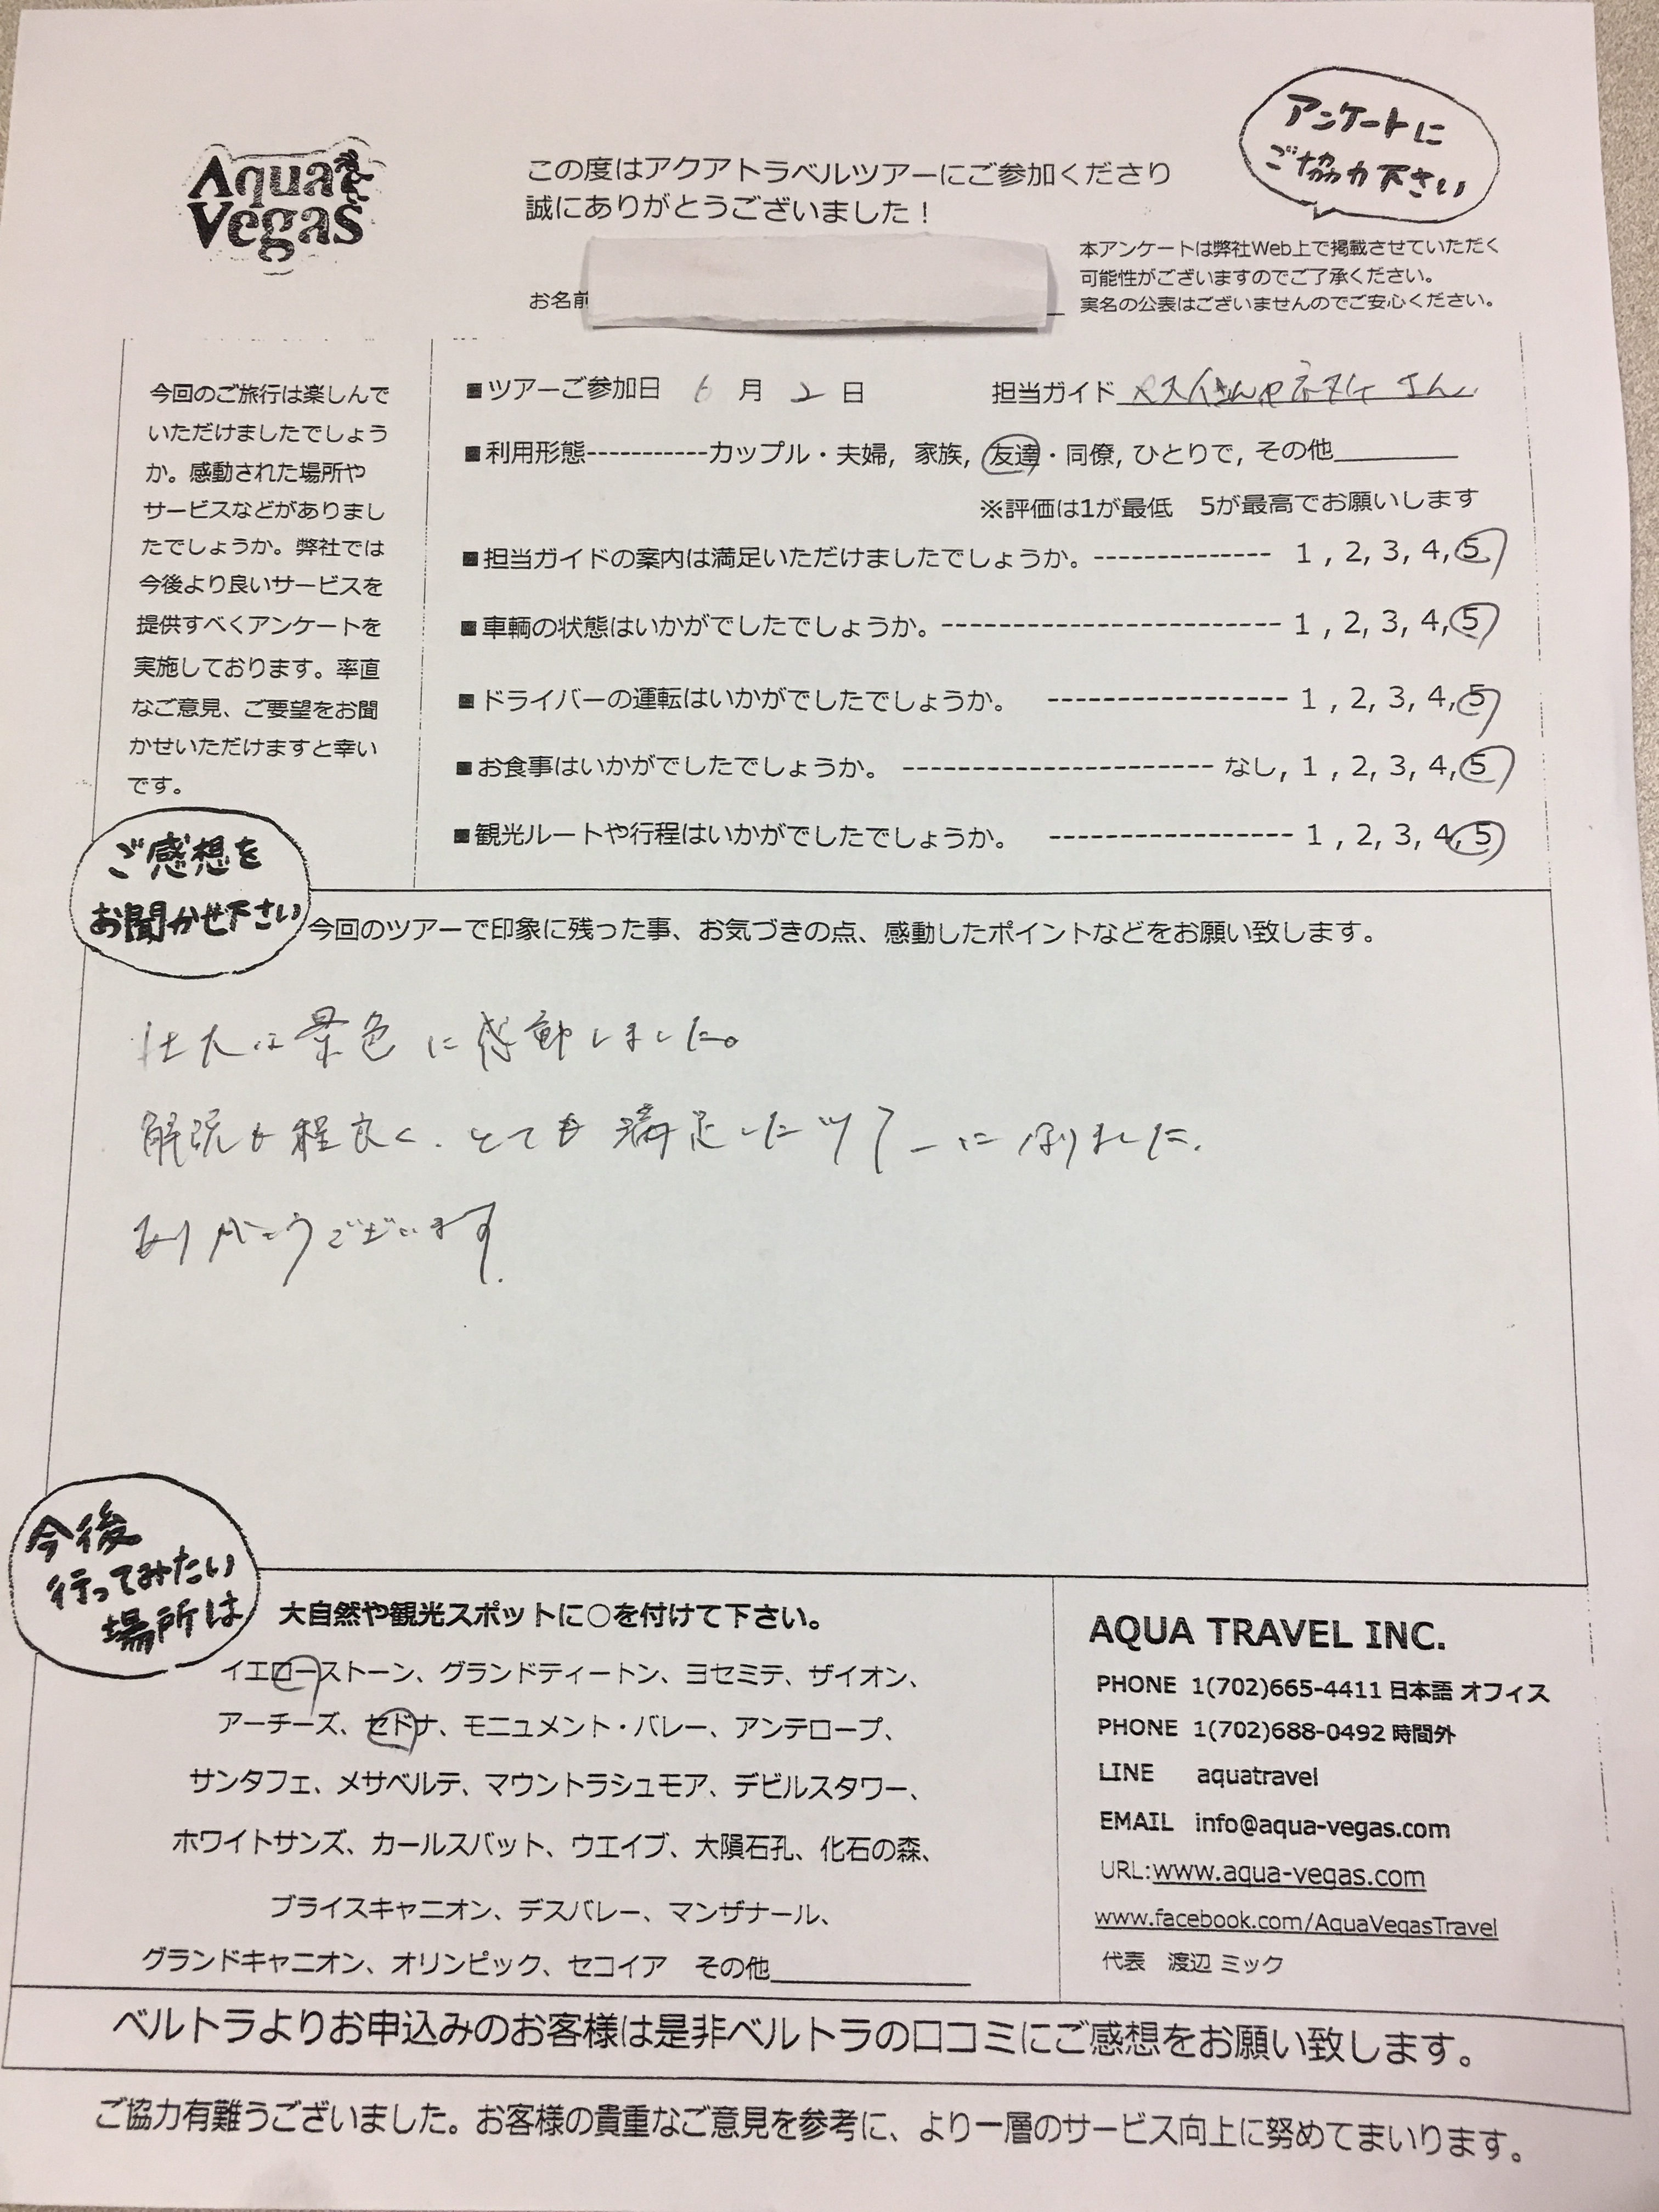 Aqua
Vegas
この度はアクアトラベルツアーにご参加くださり
誠にありがとうございました！
アンケートに
ご協力下さい
本アンケートは弊社Web上で掲載させていただく
可能性がございますのでご了承ください。
実名の公表はございませんのでご安心ください。
お名前
今回のご旅行は楽しんで
いただけましたでしょう
か。感動された場所や
サービスなどがありまし
たでしょうか。弊社では
今後より良いサービスを
提供すべくアンケートを
実施しております。率直
なご意見、ご要望をお聞
かせいただけますと幸い
です。
■ツアーご参加日 6 月 2 日 担当ガイド さん
■利用形態-----------カップル・夫婦, 家族, 友達・同僚, ひとりで, その他
※評価は1が最低 5が最高でお願いします
■担当ガイドの案内は満足いただけましたでしょうか。------------- 1 , 2, 3, 4, 5
■車輌の状態はいかがでしたでしょうか。------------------------- 1 , 2, 3, 4, 5
■ドライバーの運転はいかがでしたでしょうか。 ----------------- 1 , 2, 3, 4, 5
■お食事はいかがでしたでしょうか。 ---------------------- なし, 1 , 2, 3, 4, 5
■観光ルートや行程はいかがでしたでしょうか。 ----------------- 1 , 2, 3, 4, 5
ご感想を
お聞かせ下さい
今回のツアーで印象に残った事、お気づきの点、感動したポイントなどをお願い致します。
壮大な景色に感動しました。
解説も程良く、とても満足したツアーになりました。
ありがとうございます。
今後
行ってみたい
場所は
大自然や観光スポットに○を付けて下さい。
イエローストーン、グランドティートン、ヨセミテ、ザイオン、
アーチーズ、セドナ、モニュメント・バレー、アンテロープ、
サンタフェ、メサベルテ、マウントラシュモア、デビルスタワー、
ホワイトサンズ、カールスバット、ウエイブ、大隕石孔、化石の森、
ブライスキャニオン、デスバレー、マンザナール、
グランドキャニオン、オリンピック、セコイア その他
AQUA TRAVEL INC.
PHONE 1(702)665-4411 日本語 オフィス
PHONE 1(702)688-0492 時間外
LINE aquatravel
EMAIL info@aqua-vegas.com
URL:www.aqua-vegas.com
www.facebook.com/AquaVegasTravel
代表 渡辺 ミック
ベルトラよりお申込みのお客様は是非ベルトラの口コミにご感想をお願い致します。
ご協力有難うございました。お客様の貴重なご意見を参考に、より一層のサービス向上に努めてまいります。